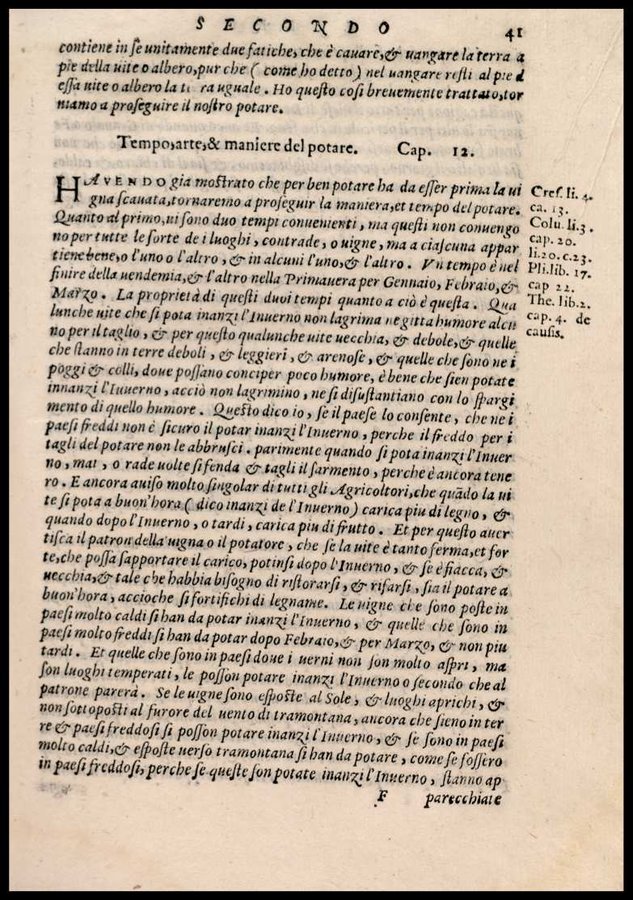 SECONDO 41
contiene in se unitamente due fatiche, che è cauare, & uangare la terra a
pie della uite o albero, pur che ( come ho detto ) nel uangare resti al pie d
essa uite o albero la uguale . Ho questo cosi breuemente trattato, tor
niamo a proseguire il nostro potare.
Tempo, arte, & maniere del potare. Cap. 12.
HAVENDO gia mostrato che per ben potare ha da esser prima la ui
gna scauata, tornaremo a proseguir la maniera, et tempo del potare.
Quanto al primo, ui sono due tempi conuenienti, ma questi non conuengo
no per tutte le sorte de i luoghi, contrade, o uigne, ma a ciascuna appar
tiene bene, o l'uno o l'altro, & in alcuni l'uno, & l'altro. Vn tempo è nel
finire della uendemia, & l'altro nella Primauera per Gennaio, Febraio, &
Marzo. La proprietà di questi duoi tempi quanto a ciò è questa. Qua
lunche uite che si pota inanzi l'Inuerno non lagrima ne gitta humore alcu
no per il taglio, & per questo qualunche uite uecchia, & debole, & quelle
che stanno in terre deboli, & leggieri, & arenose, & quelle che sono ne i
poggi & colli, doue possano conciper poco humore, è bene che sien potate
innanzi l'Inuerno, acciò non lagrimino, ne si disustantiano con lo spargi
mento di quello humore. Questo dico io, se il paese lo consente, che ne i
paesi freddi non è sicuro il potar inanzi l'Inuerno, perche il freddo per i
tagli del potare non le abbrusci. parimente quando si pota inanzi l'Inuer
no, mai, o rade uolte si fenda & tagli il sarmento, perche è ancora tene
ro. E ancora auiso molto singolar di tutti gli Agricoltori, che quãdo la ui
te si pota a buon'hora ( dico inanzi de l'Inuerno ) carica piu di legno, &
quando dopo l'Inuerno, o tardi, carica piu di frutto. Et per questo auer
tisca il patron della uigna o il potatore, che se la uite è tanto ferma, et for
te, che possa sapportare il carico, potinsi dopo l'Inuerno, & se è fiacca, &
uecchia, & tale che habbia bisogno di ristorarsi, & rifarsi, sia il potare a
buon'hora, accioche si fortifichi di legname. Le uigne che sono poste in
paesi molto caldi si han da potar inanzi l'Inuerno, & quelle che sono in
paesi molto freddi si han da potar dopo Febraio, & per Marzo, & non piu
tardi. Et quelle che sono in paesi doue i uerni non son molto aspri, ma
son luoghi temperati, le posson potare inanzi l'Inuerno o secondo che al
patrone parerà. Se le uigne sono esposte al Sole, & luoghi aprichi, &
non sottoposti al furore del uento di tramontana, ancora che sieno in ter
re & paesi freddosi si posson potare inanzi l'Inuerno, & se sono in paesi
molto caldi, & esposte uerso tramontana si han da potare, come se fossero
in paesi freddosi, perche se queste son potate inanzi l'Inuerno, stanno ap
F parecchiate
Cres. li. 4.
ca. 13.
Colu. li. 3.
cap. 20.
li. 20. c. 23.
Pli. lib. 17.
cap 22.
The. lib. 2.
cap. 4. de
causis.